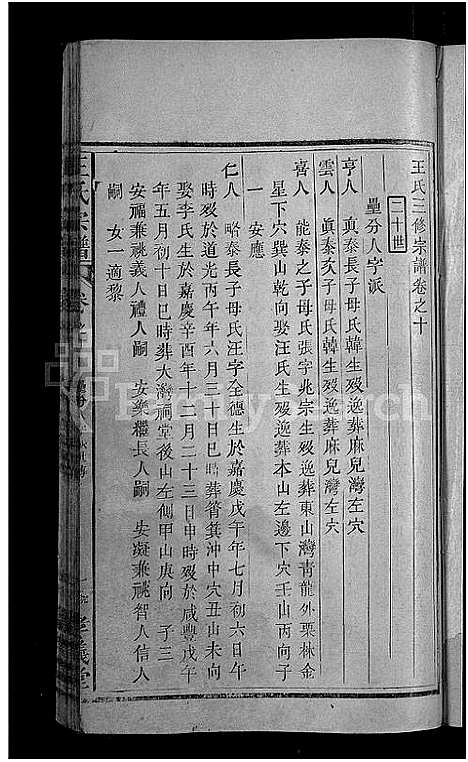 王氏三修宗譜卷之十
二十世
壘分人字派
亨人　眞泰長子母氏韓生歿逸葬麻兒灣左穴
雲人　眞泰次子母氏韓生歿逸葬麻兒灣左穴
喜人　能泰之子母氏張字兆宗生歿逸葬東山灣靑龍外栗林金
星下穴巽山乾向娶汪氏生歿逸葬本山左邊下穴壬山丙向子
一　安應
仁人　略泰長子母氏汪字全德生於嘉慶戊午年七月初六日午
時歿於道光丙午年六月三十日巳時葬筲箕沖中穴丑山未向
娶李氏生於嘉慶辛酉年十二月二十三日申時歿於咸豐戊午
年五月初十日巳時葬大灣祠堂後山左側甲山庚向　子三
安福兼祧義人禮人嗣　安樂繼長人嗣　安凝兼祧智人信人
嗣　女一適黎
王氏宗譜
孝義堂
FamilySearch